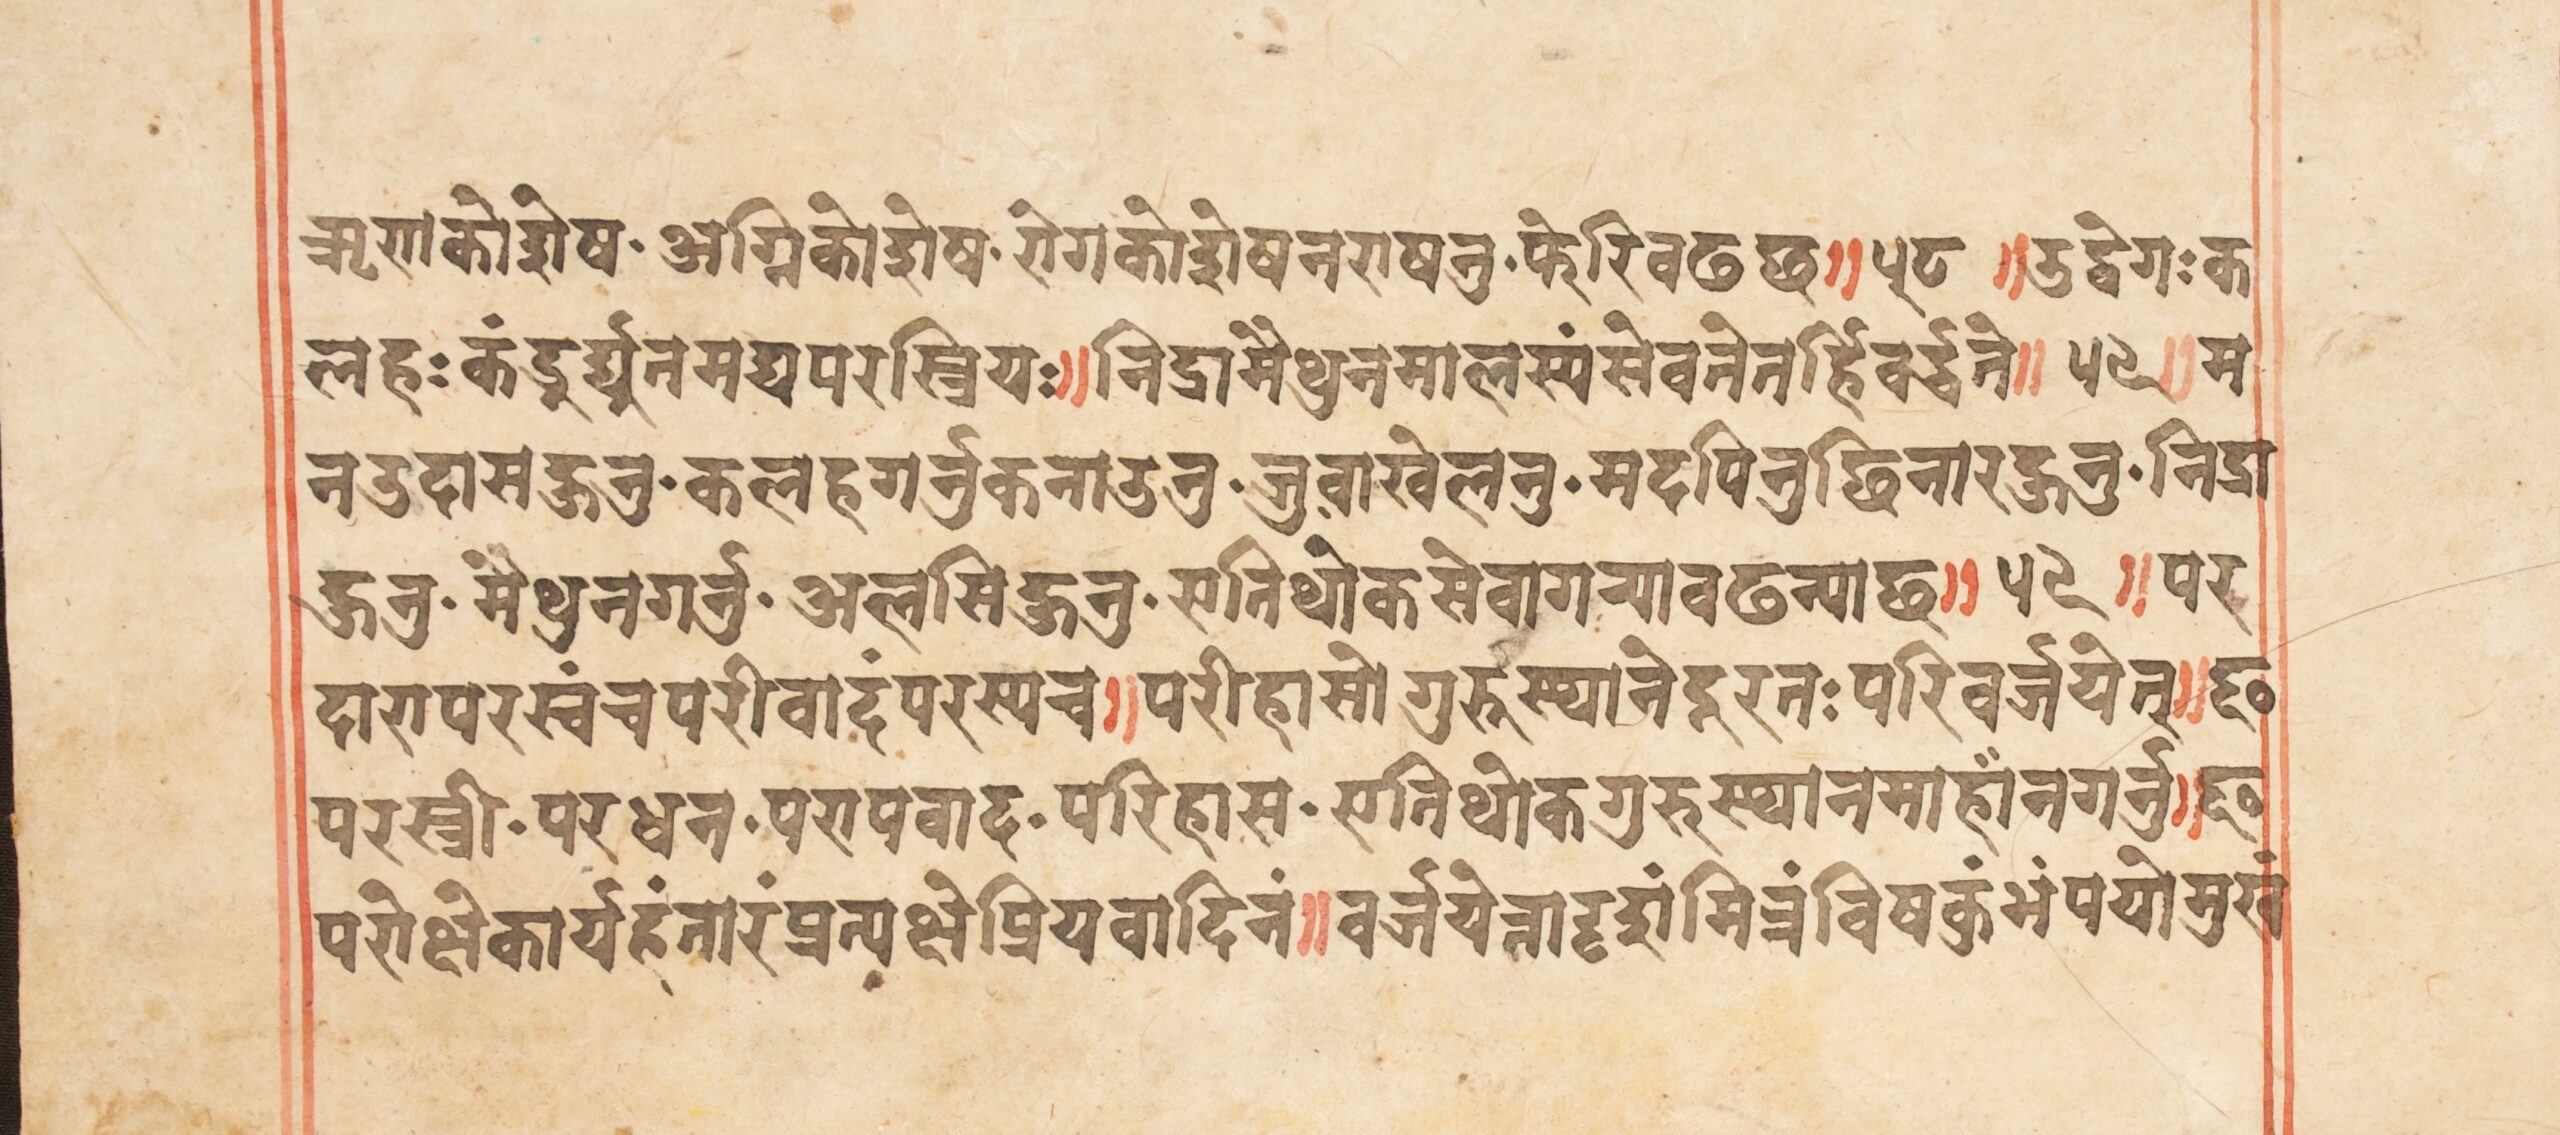 ऋणकोशेष· अग्निकोशेष· रोगकोशेषनराषनु· फेरिवढछ॥ ५८ ॥उद्वेगःक
लहःकंडुर्द्यूतमद्यपरस्त्रियः॥निद्रामैथुनमालस्यंसेवनेनर्हिवर्द्धने॥ ५९॥म
नउदासह्नु· कलहगर्नुकनाउनु· जुवाखेलनु· मदपिनुछिनारह्नु· निद्रा
ह्नु· मैंथुनगर्नु· अलसिह्नु· एतिथोकसेवागर्‍यावढत्याछ॥ ५९ ॥पर
दारापरस्वंचपरीवादंपरस्यच॥परीहासोगुरुस्थानेदूरतःपरिवर्जयेत्॥६०
परस्त्री· परधन· परापवाद· परिहास· एतिथोकगुरुस्थानमाहाँनगर्नु॥६०
परोक्षेकार्यहंतारंप्रत्यक्षेप्रियवादिनं॥वर्जयेत्तादृशंमित्रंविषकुंभंपयोमुखं